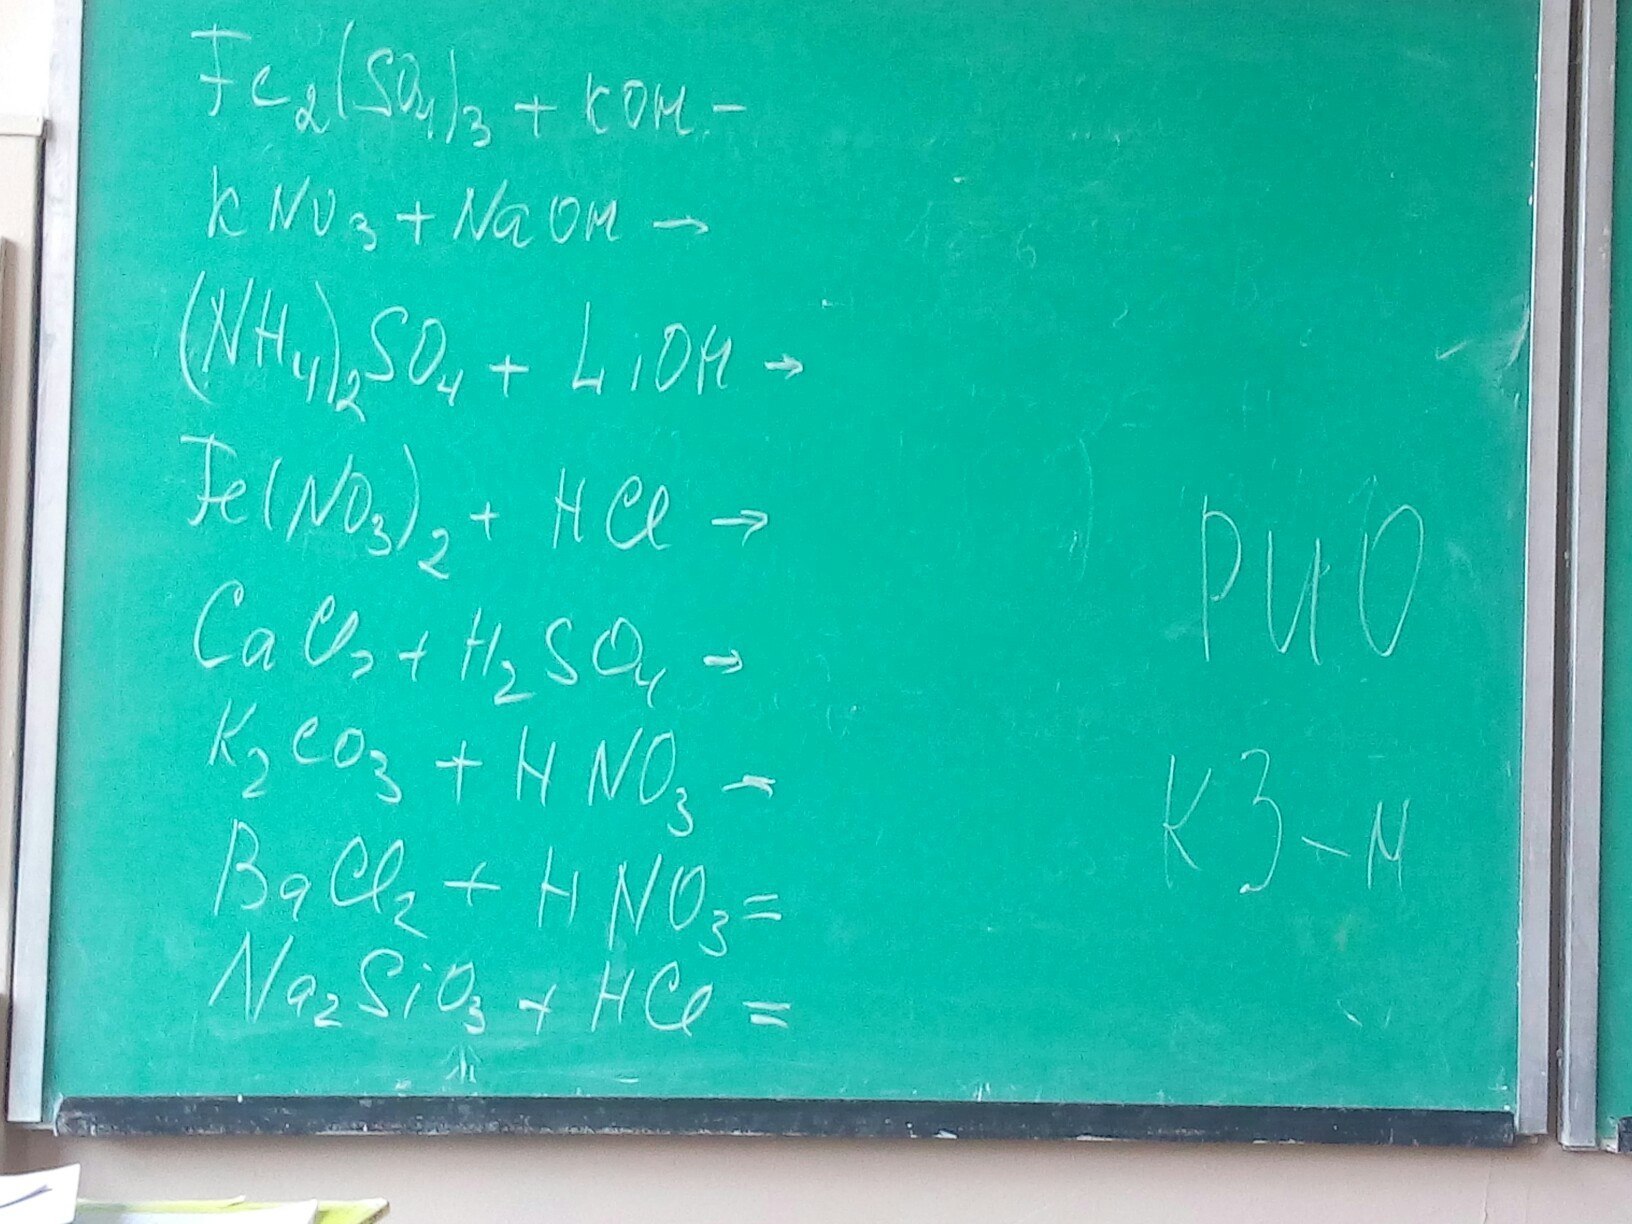 Fe2(SO4)3 + KOH -
KNO3 + NaOH →
(NH4)2SO4 + LiOH →
Fe(NO3)2 + HCl →
CaCl2 + H2SO4 →
K2CO3 + HNO3 →
BaCl2 + HNO3 =
Na2SiO3 + HCl =
РИО
КЗ-М